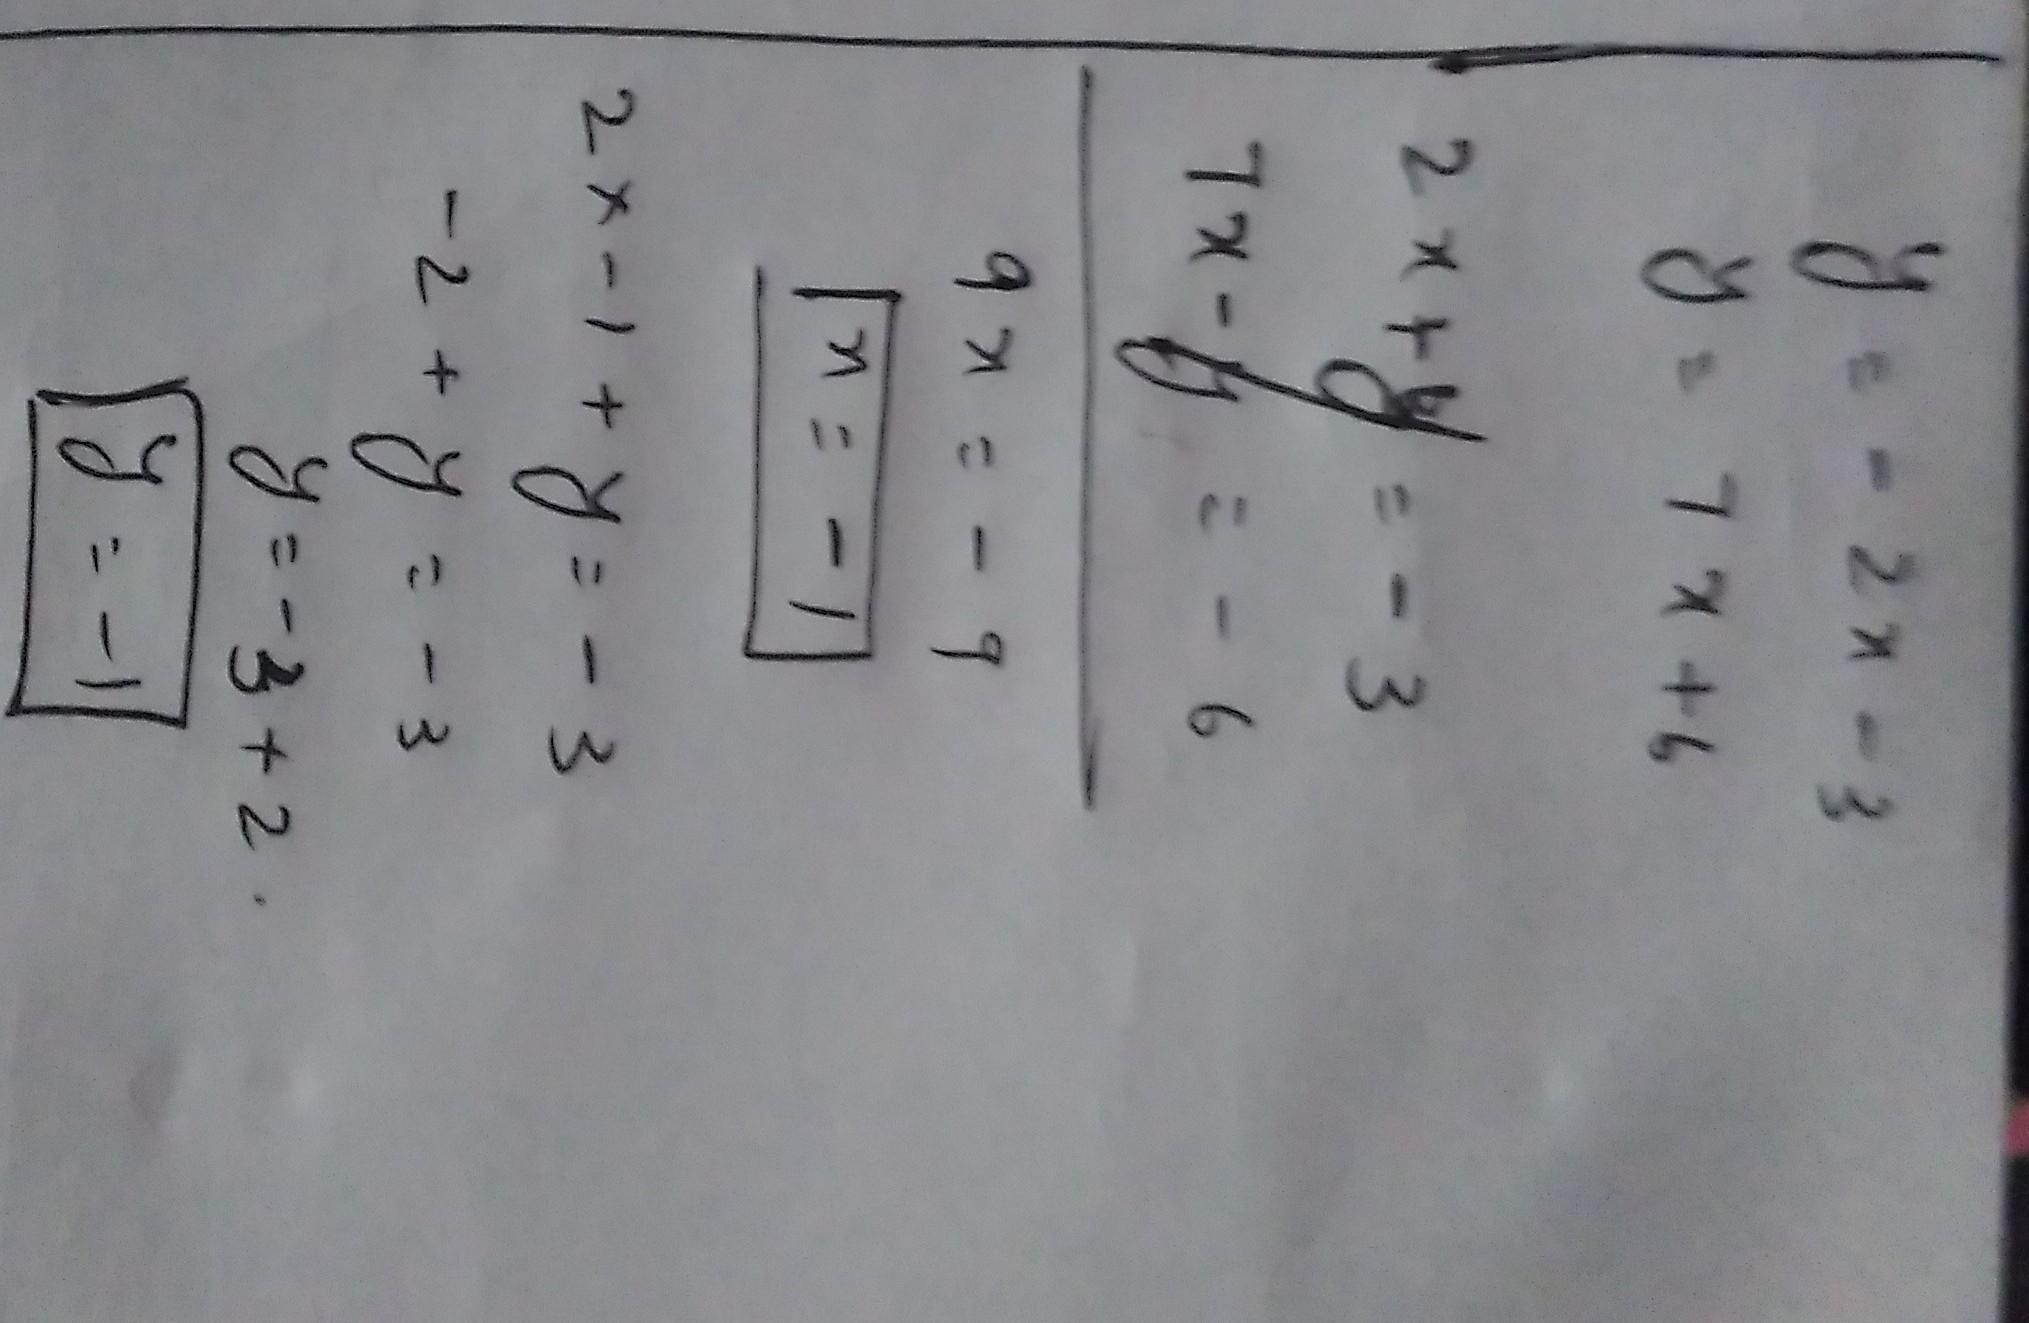 y = - 2x - 3
y = 7x + 6
2x + y = - 3
7x - y = - 6
9x = - 9
x = - 1
2 x - 1 + y = - 3
- 2 + y = - 3
y = - 3 + 2.
y = - 1